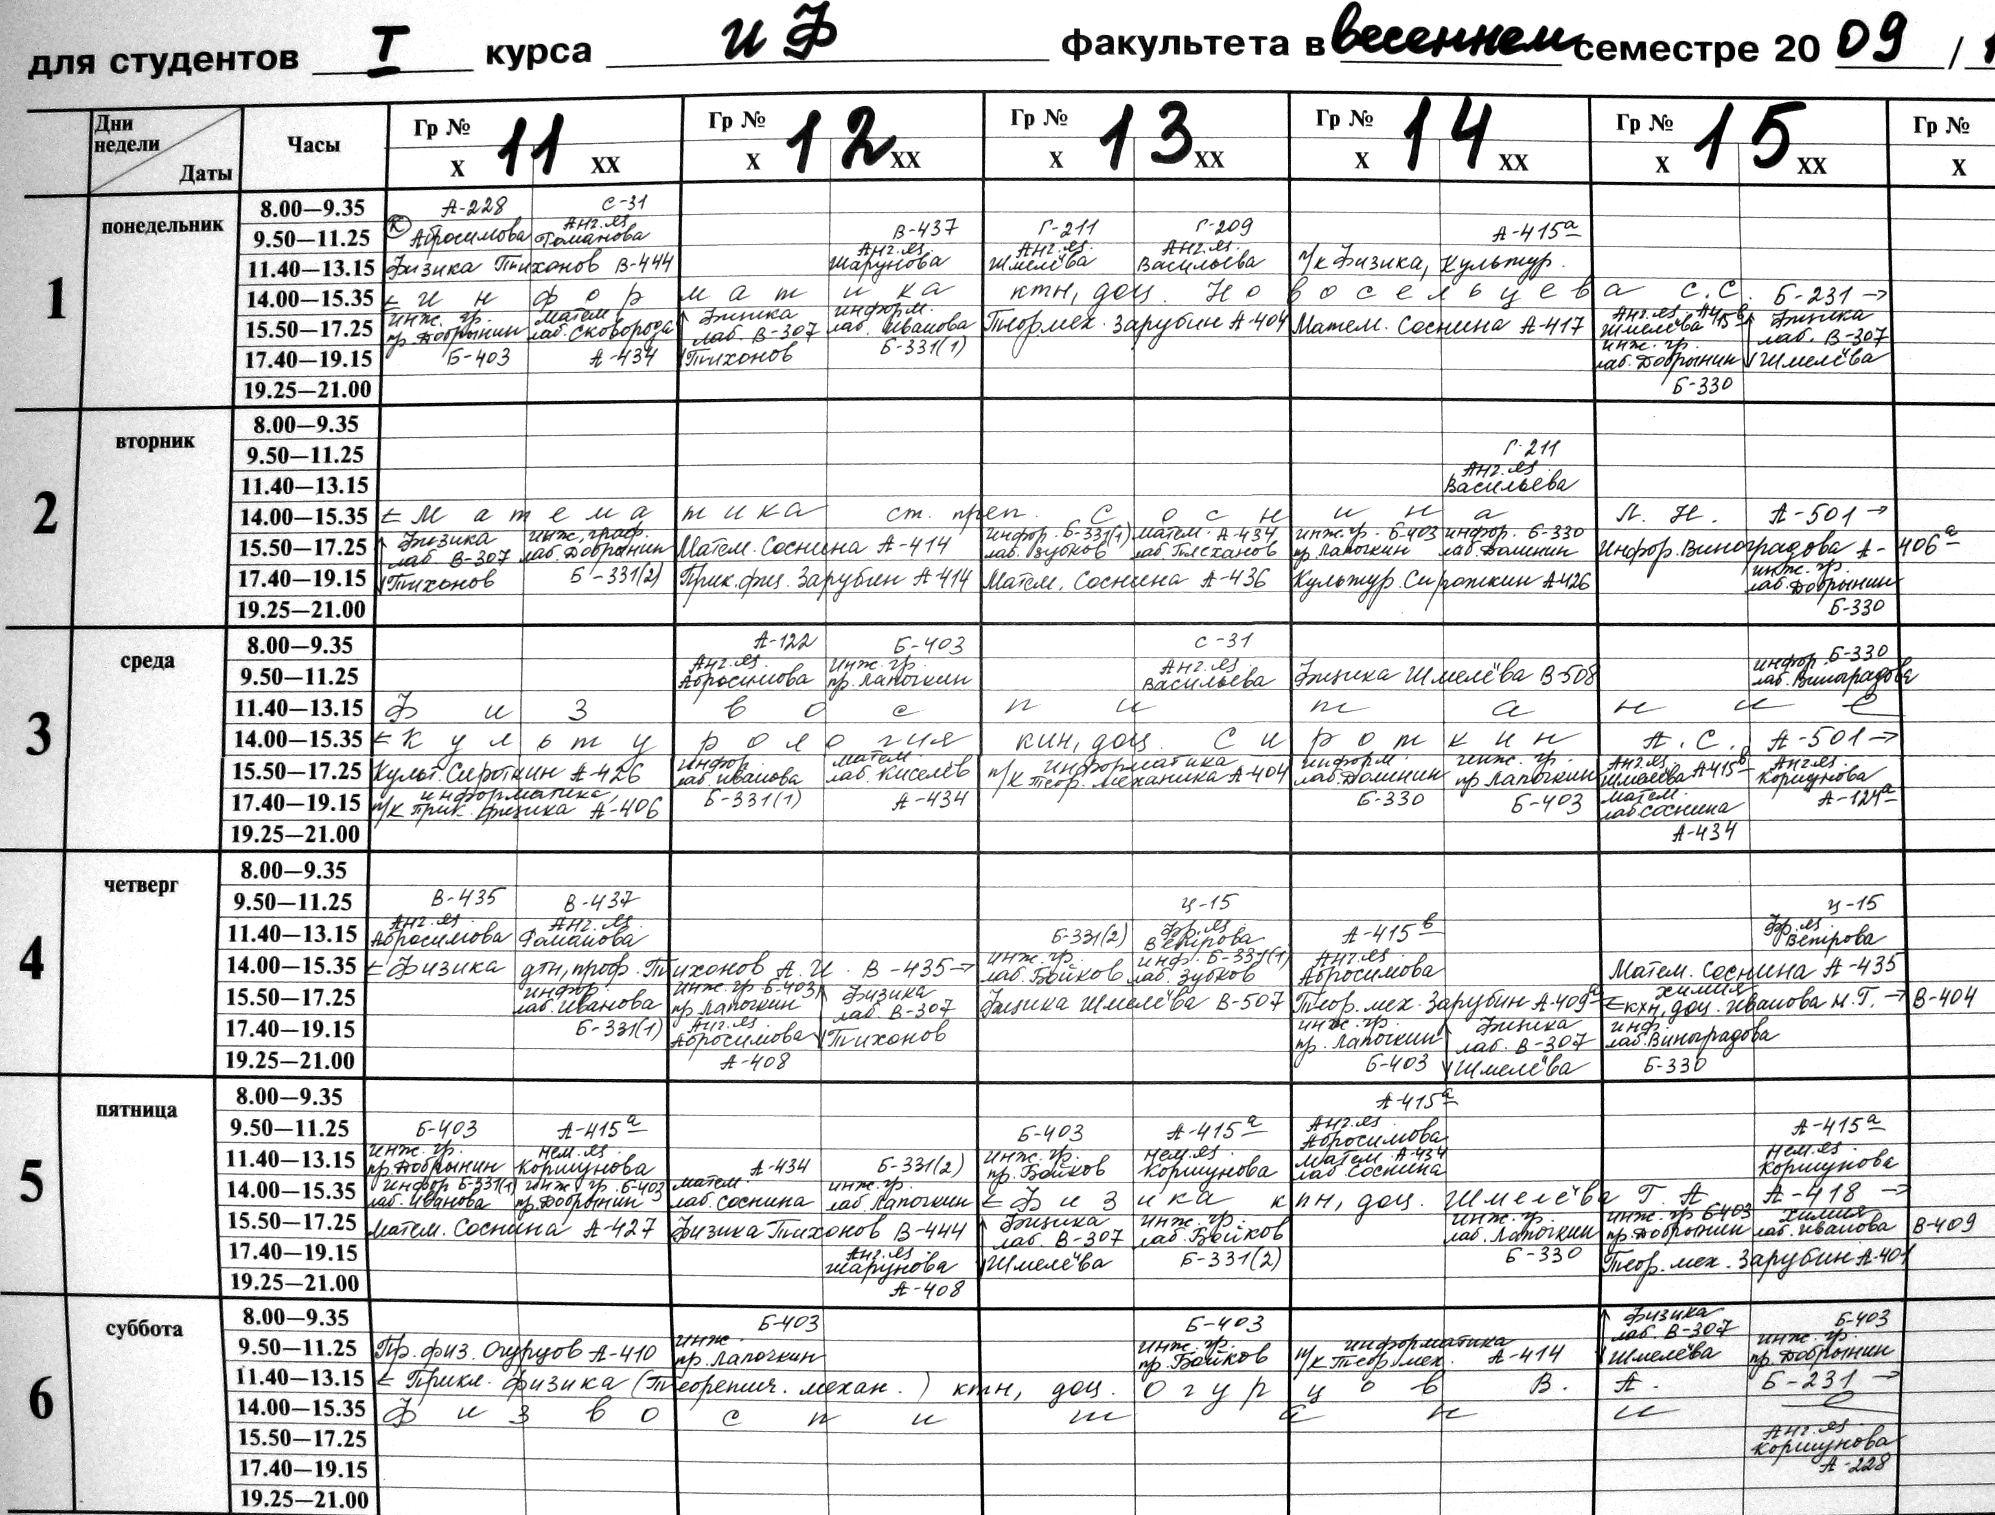 для студентов I курса ИФ факультета в весеннем семестре 20 09 /
Дни недели Даты Часы Гр № 11 Гр № 12 Гр № 13 Гр № 14 Гр № 15 Гр №
X XX X XX X XX X XX X XX X
1 понедельник
8.00—9.35 А-228 С-31
9.50—11.25 К Абросимова Англ. яз. Томанова В-437 Г-211 Г-209 А-415а
11.40—13.15 Физика Тихонов В-444 Анг. яз. Шарунова Анг. яз. Шмелёва Анг. яз. Васильева п/к Физика, Культур.
14.00—15.35 ← Информатика ктн, доц. Новосельцева С.С. Б-231 →
15.50—17.25 инж. гр. пр. Добрынин матем. лаб. Сковорода Физика лаб. В-307 информ. лаб. Иванова Теор.мех. Зарубин А-404 Матем. Соснина А-417 Анг. яз. Шмелёва А415в Физика лаб. В-307
17.40—19.15 Б-403 А-434 Тихонов Б-331(1) инж. гр. лаб. Добрынин Шмелёва
19.25—21.00 Б-330
2 вторник
8.00—9.35
9.50—11.25 Г-211
11.40—13.15 Анг. яз. Васильева
14.00—15.35 ← Математика ст. преп. Соснина Л. Н. А-501 →
15.50—17.25 Физика лаб. В-307 инж. граф. лаб. Добрынин Матем. Соснина А-414 инфор. Б-331(1) лаб. Зубков матем. А-434 лаб. Плеханов инж. гр. Б-403 пр. Лапочкин инфор. Б-330 лаб. Долинин Инфор. Виноградова А-406а
17.40—19.15 Тихонов Б-331(2) Прик. физ. Зарубин А-414 Матем. Соснина А-436 Культур. Сироткин А426 инж. гр. лаб. Добрынин
19.25—21.00 Б-330
3 среда
8.00—9.35 А-122 Б-403 С-31
9.50—11.25 Анг. яз. Абросимова инж. гр. пр. Лапочкин Анг. яз. Васильева Физика Шмелёва В-508 инфор. Б-330 лаб. Виноградова
11.40—13.15 Физвоспитание
14.00—15.35 ← Культурология кин, доц. Сироткин А. С. А-501 →
15.50—17.25 Культ. Сироткин А-426 инфор. лаб. Иванова матем. лаб. Киселёв п/к информатика Теор. механика А-404 информ. лаб. Долинин инж. гр. пр. Лапочкин Анг. яз. Шмелёва А415в Анг. яз. Коршунова
17.40—19.15 п/к информатика, Прик. физика А-406 Б-331(1) А-434 Б-330 Б-403 матем. лаб Соснина А-124а
19.25—21.00 А-434
4 четверг
8.00—9.35
9.50—11.25 В-435 В-437 Ц-15 Ц-15
11.40—13.15 Анг. яз. Абросимова Анг. яз. Романова Б-331(2) Фр. яз. Ветрова А-415в Фр. яз Ветрова
14.00—15.35 ← Физика дтн, проф. Тихонов А. И. В-435 → инж. гр. лаб. Бойков инф. Б-331(1) лаб. Зубков Анг. яз. Абросимова Матем. Соснина А-435
15.50—17.25 инфор. лаб. Иванова инж. гр. Б-403 пр. Лапочкин Физика лаб. В-307 Физика Шмелёва В-507 Теор. мех. Зарубин А-409а ← химия кхн, доц. Иванова Н. Г. → В-404
17.40—19.15 Б-331(1) Анг. яз Абросимова Тихонов инж. гр. пр. Лапочкин Физика лаб. В-307 инф. лаб. Виноградова
19.25—21.00 А-408 Б-403 Шмелёва Б-330
5 пятница
8.00—9.35 А-415а
9.50—11.25 Б-403 А-415а Б-403 А-415а Анг. яз. Абросимова А-415а
11.40—13.15 инж. гр. пр. Добрынин Нем. яз. Коршунова А-434 Б-331(2) инж. гр. пр. Бойков Нем. яз Коршунова Матем. А-434 лаб. Соснина Нем. яз Коршунова
14.00—15.35 инфор Б-331(1) лаб. Иванова инж. гр. Б-403 пр. Добрынин матем. лаб. Соснина инж. гр. лаб. Лапочкин ← Физика кпн, доц. Шмелёва Г. А А-418 →
15.50—17.25 Матем. Соснина А-427 Физика Тихонов В-444 Физика лаб. В-307 инж. гр. лаб. Бойков инж. гр. лаб. Лапочкин инж. гр Б403 пр. Добрынин химия лаб. Иванова В-409
17.40—19.15 Анг. яз Шарунова Шмелёва Б-331(2) Б-330 Теор. мех. Зарубин А-401
19.25—21.00 А-408
6 суббота
8.00—9.35 Б-403 Б-403 Физика лаб. В-307 Б-403
9.50—11.25 Пр. физ. Огурцов А-410 инж. пр. Лапочкин инж. гр. пр. Бойков п/к информатика Теор. мех. А-414 Шмелёва инж. гр. пр. Добрынин
11.40—13.15 ← Прикл. физика (Теоретич. механ.) ктн, доц. Огурцов В. А. Б-231 →
14.00—15.35 Физвоспитание
15.50—17.25 Анг. яз. Коршунова
17.40—19.15 А-228
19.25—21.00